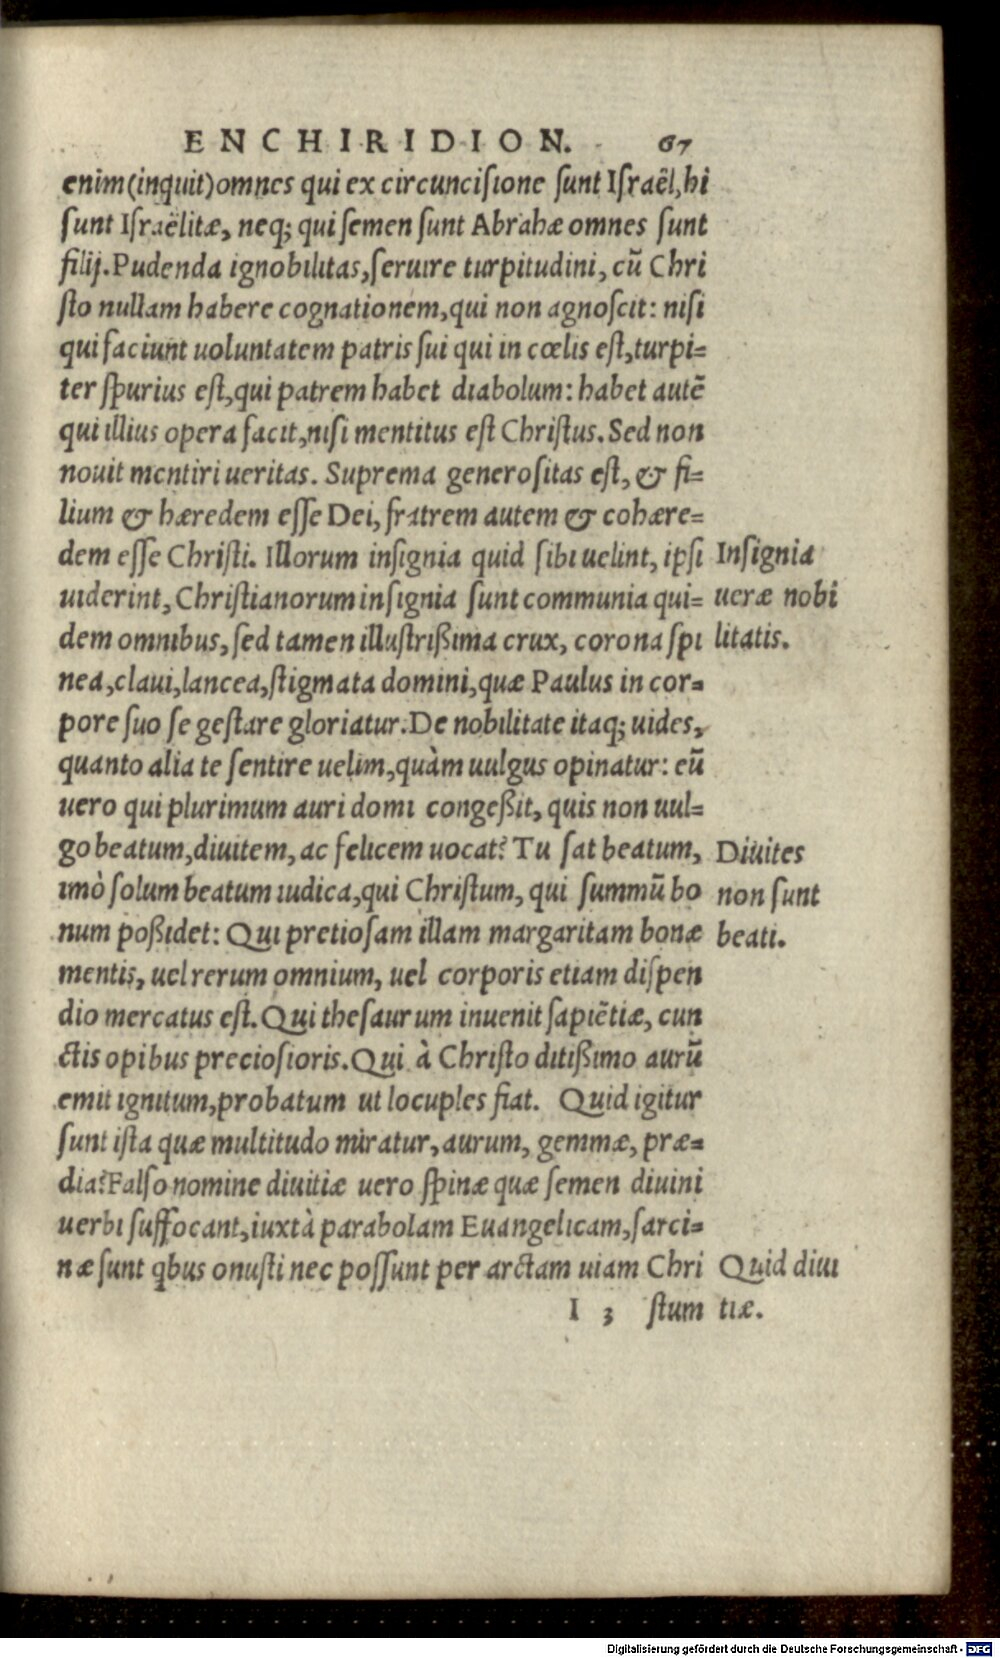 ENCHIRIDION. 67
enim (inquit) omnes qui ex circuncisione sunt Israël, hi
sunt Israëlitæ, neq; qui semen sunt Abrahæ omnes sunt
filij. Pudenda ignobilitas, seruire turpitudini, cũ Chri
sto nullam habere cognationem, qui non agnoscit: nisi
qui faciunt uoluntatem patris sui qui in cœlis est, turpi=
ter spurius est, qui patrem habet diabolum: habet autẽ
qui illius opera facit, nisi mentitus est Christus. Sed non
nouit mentiri ueritas. Suprema generositas est, & fi=
lium & hæredem esse Dei, fratrem autem & cohære=
dem esse Christi. Illorum insignia quid sibi uelint, ipsi
uiderint, Christianorum insignia sunt communia qui=
dem omnibus, sed tamen illustrißima crux, corona spi
nea, claui, lancea, stigmata domini, quæ Paulus in cor=
pore suo se gestare gloriatur. De nobilitate itaq; uides,
quanto alia te sentire uelim, quàm uulgus opinatur: eũ
uero qui plurimum auri domi congeßit, quis non uul=
go beatum, diuitem, ac felicem uocat? Tu sat beatum,
imò solum beatum iudica, qui Christum, qui summũ bo
num poßidet: Qui pretiosam illam margaritam bonæ
mentis, uel rerum omnium, uel corporis etiam dispen
dio mercatus est. Qui thesaurum inuenit sapiẽtiæ, cun
ctis opibus preciosioris. Qui à Christo ditißimo aurũ
emit ignitum, probatum ut locuples fiat. Quid igitur
sunt ista quæ multitudo miratur, aurum, gemmæ, præ=
dia? Falso nomine diuitiæ uero spinæ quæ semen diuini
uerbi suffocant, iuxtà parabolam Euangelicam, sarci=
næ sunt qbus onusti nec possunt per arctam uiam Chri
I 3 stum
Insignia
ueræ nobi
litatis.
Diuites
non sunt
beati.
Quid diui
tiæ.
Digitalisierung gefördert durch die Deutsche Forschungsgemeinschaft - DFG